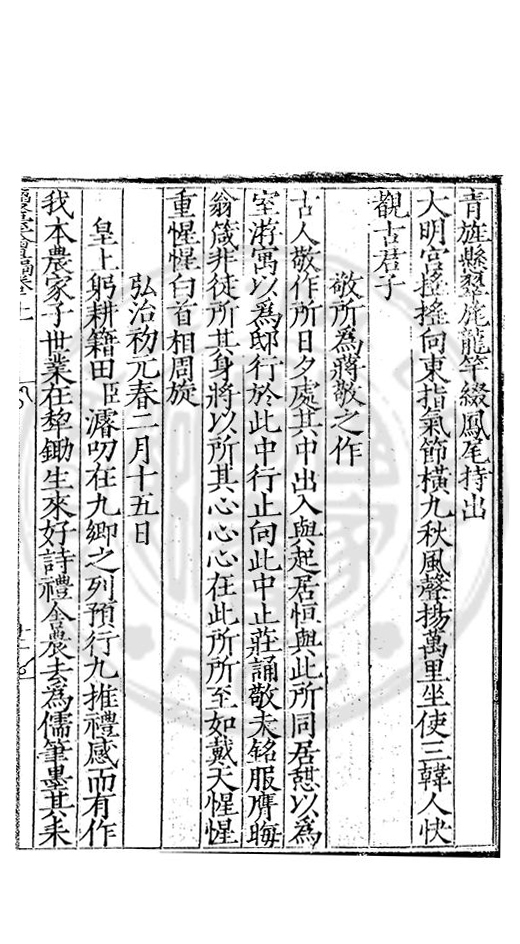 青旌懸翠旄龍竿綴鳳尾持出
大明宮搖搖向東指氣節橫九秋風聲揚萬里坐使三韓人快
覩古君子
敬所為蔣敬之作
古人敬作所日夕處其中出入與起居恒與此所同居愆以為
室游寓以為邸行於此中行止向此中止莊誦敬夫銘服膺晦
翁箴非徒所其身將以所其心心心在此所所至如戴天惺惺
重惺惺白首相周旋
弘治初元春二月十五日
皇上躬耕籍田臣濬叨在九卿之列預行九推禮感而有作
我本農家子世業在犂鋤生來好詩禮舍農去為儒筆墨其耒